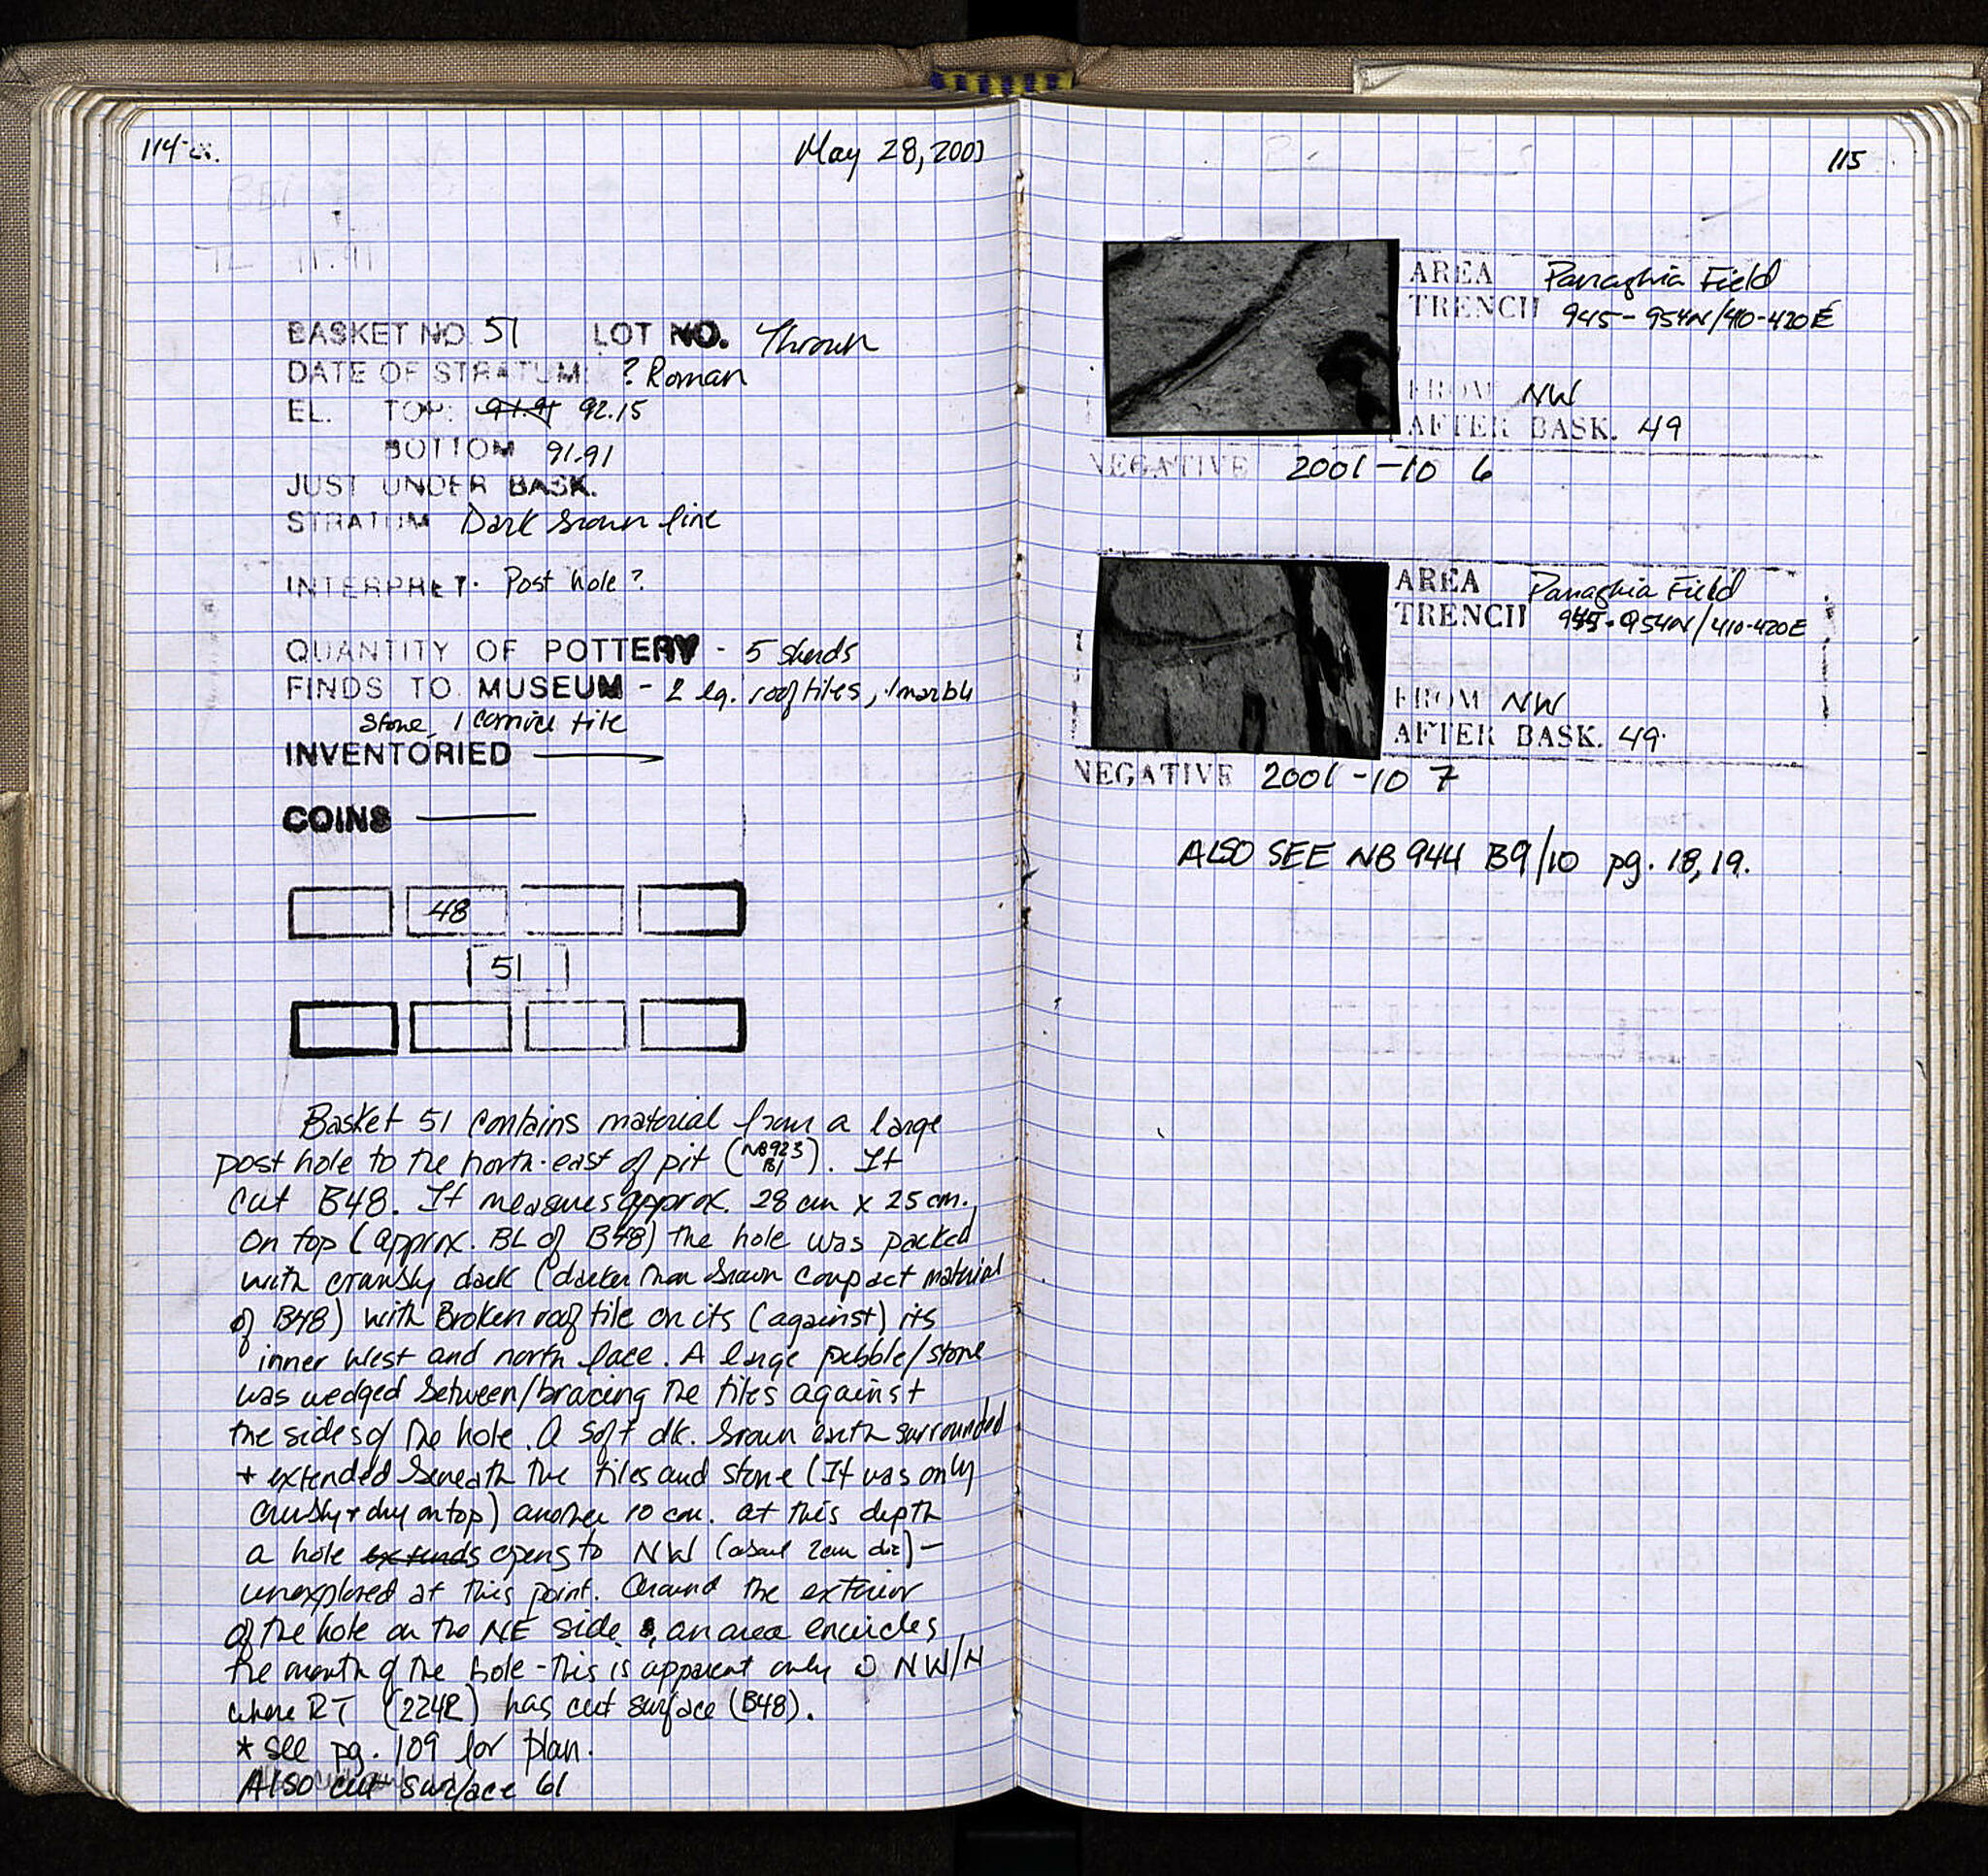 114
May 28, 2001
BASKET NO. 51 LOT NO. Thrown
DATE OF STRATUM: ? Roman
EL. TOP: 91.91 92.15
BOTTOM 91.91
JUST UNDER BASK.
STRATUM Dark brown fine
INTERPRET. Post hole?
QUANTITY OF POTTERY - 5 sherds
FINDS TO MUSEUM - 2 lg. roof tiles, 1 marble
stone, 1 cornice tile
INVENTORIED
COINS
48
51
Basket 51 contains material from a large
post hole to the north-east of pit (NB923 B1). It
cut B48. It measures approx. 28 cm x 25 cm.
On top (approx. BL of B48) the hole was packed
with crumbly dark (darker than brown compact material
of B48) with Broken roof tile on its (against) its
inner west and north face. A large pebble/stone
was wedged between/bracing the tiles against
the sides of the hole. A soft dk. brown earth surrounded
+ extended beneath the tiles and stone (It was only
crumbly + dry on top) another 10 cm. at this depth
a hole extends opens to NW (about 2cm dia) -
unexplored at this point. Around the exterior
of the hole on the NE side, an area encircles
the mouth of the hole - this is apparent only NW/N
where RT (2242) has cut surface (B48).
* see pg. 109 for plan.
Also cut surface 61
115
AREA Panaghia Field
TRENCH 945-954N/410-420E
FROM NW
AFTER BASK. 49
NEGATIVE 2001-10 6
AREA Panaghia Field
TRENCH 945-954N/410-420E
FROM NW
AFTER BASK. 49
NEGATIVE 2001-10 7
ALSO SEE NB 944 B9/10 pg. 18, 19.